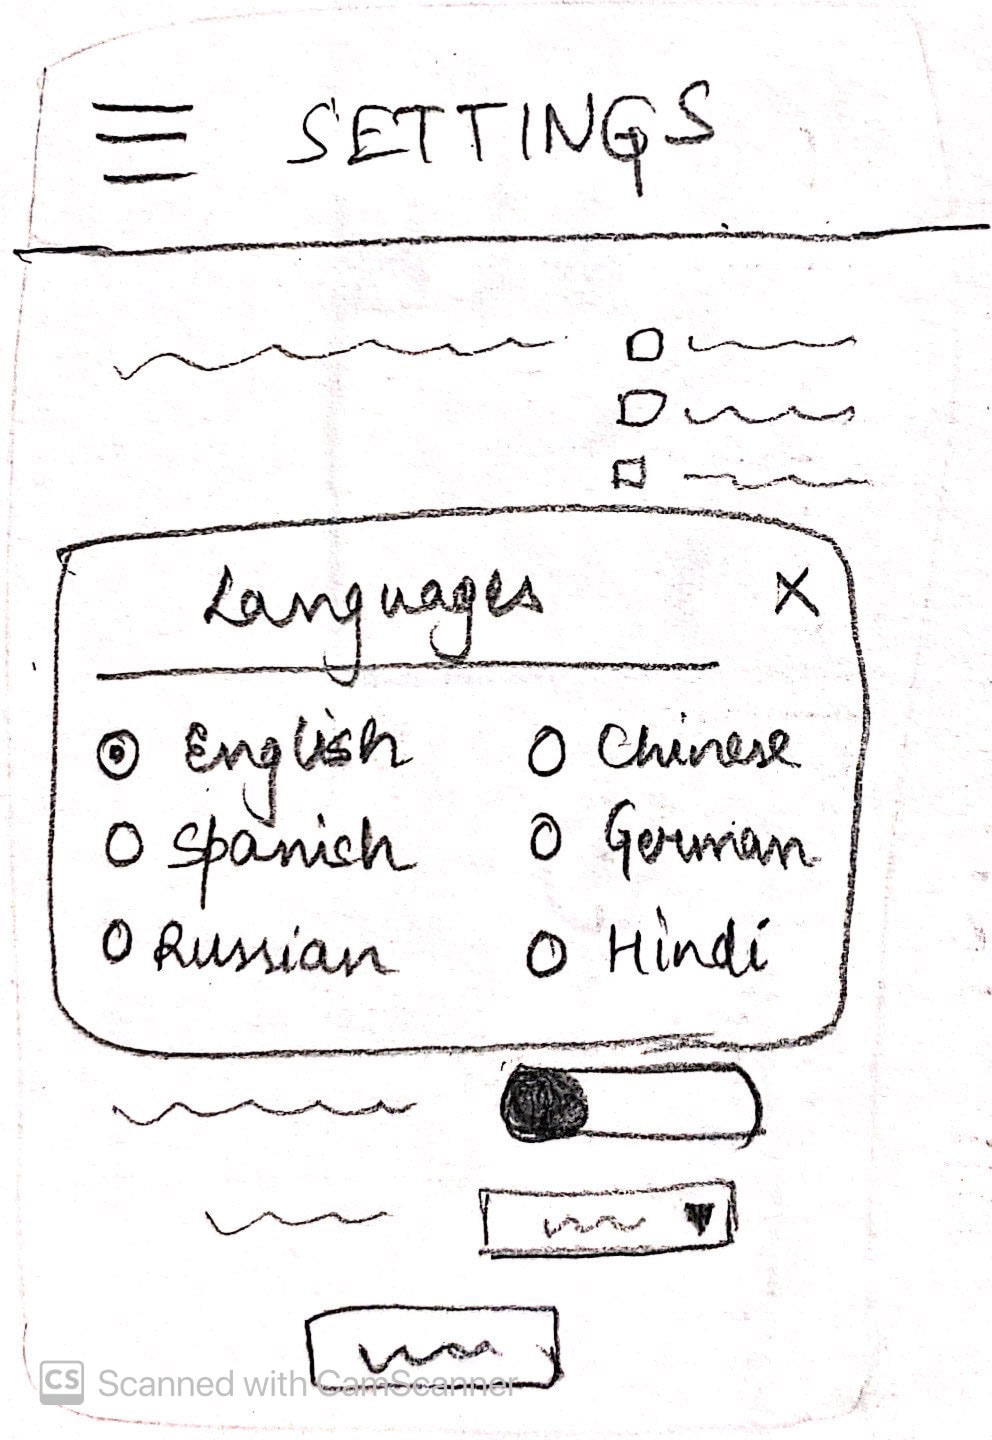 SETTINGS
Languages X
English Chinese
Spanish German
Russian Hindi
CS Scanned with CamScanner